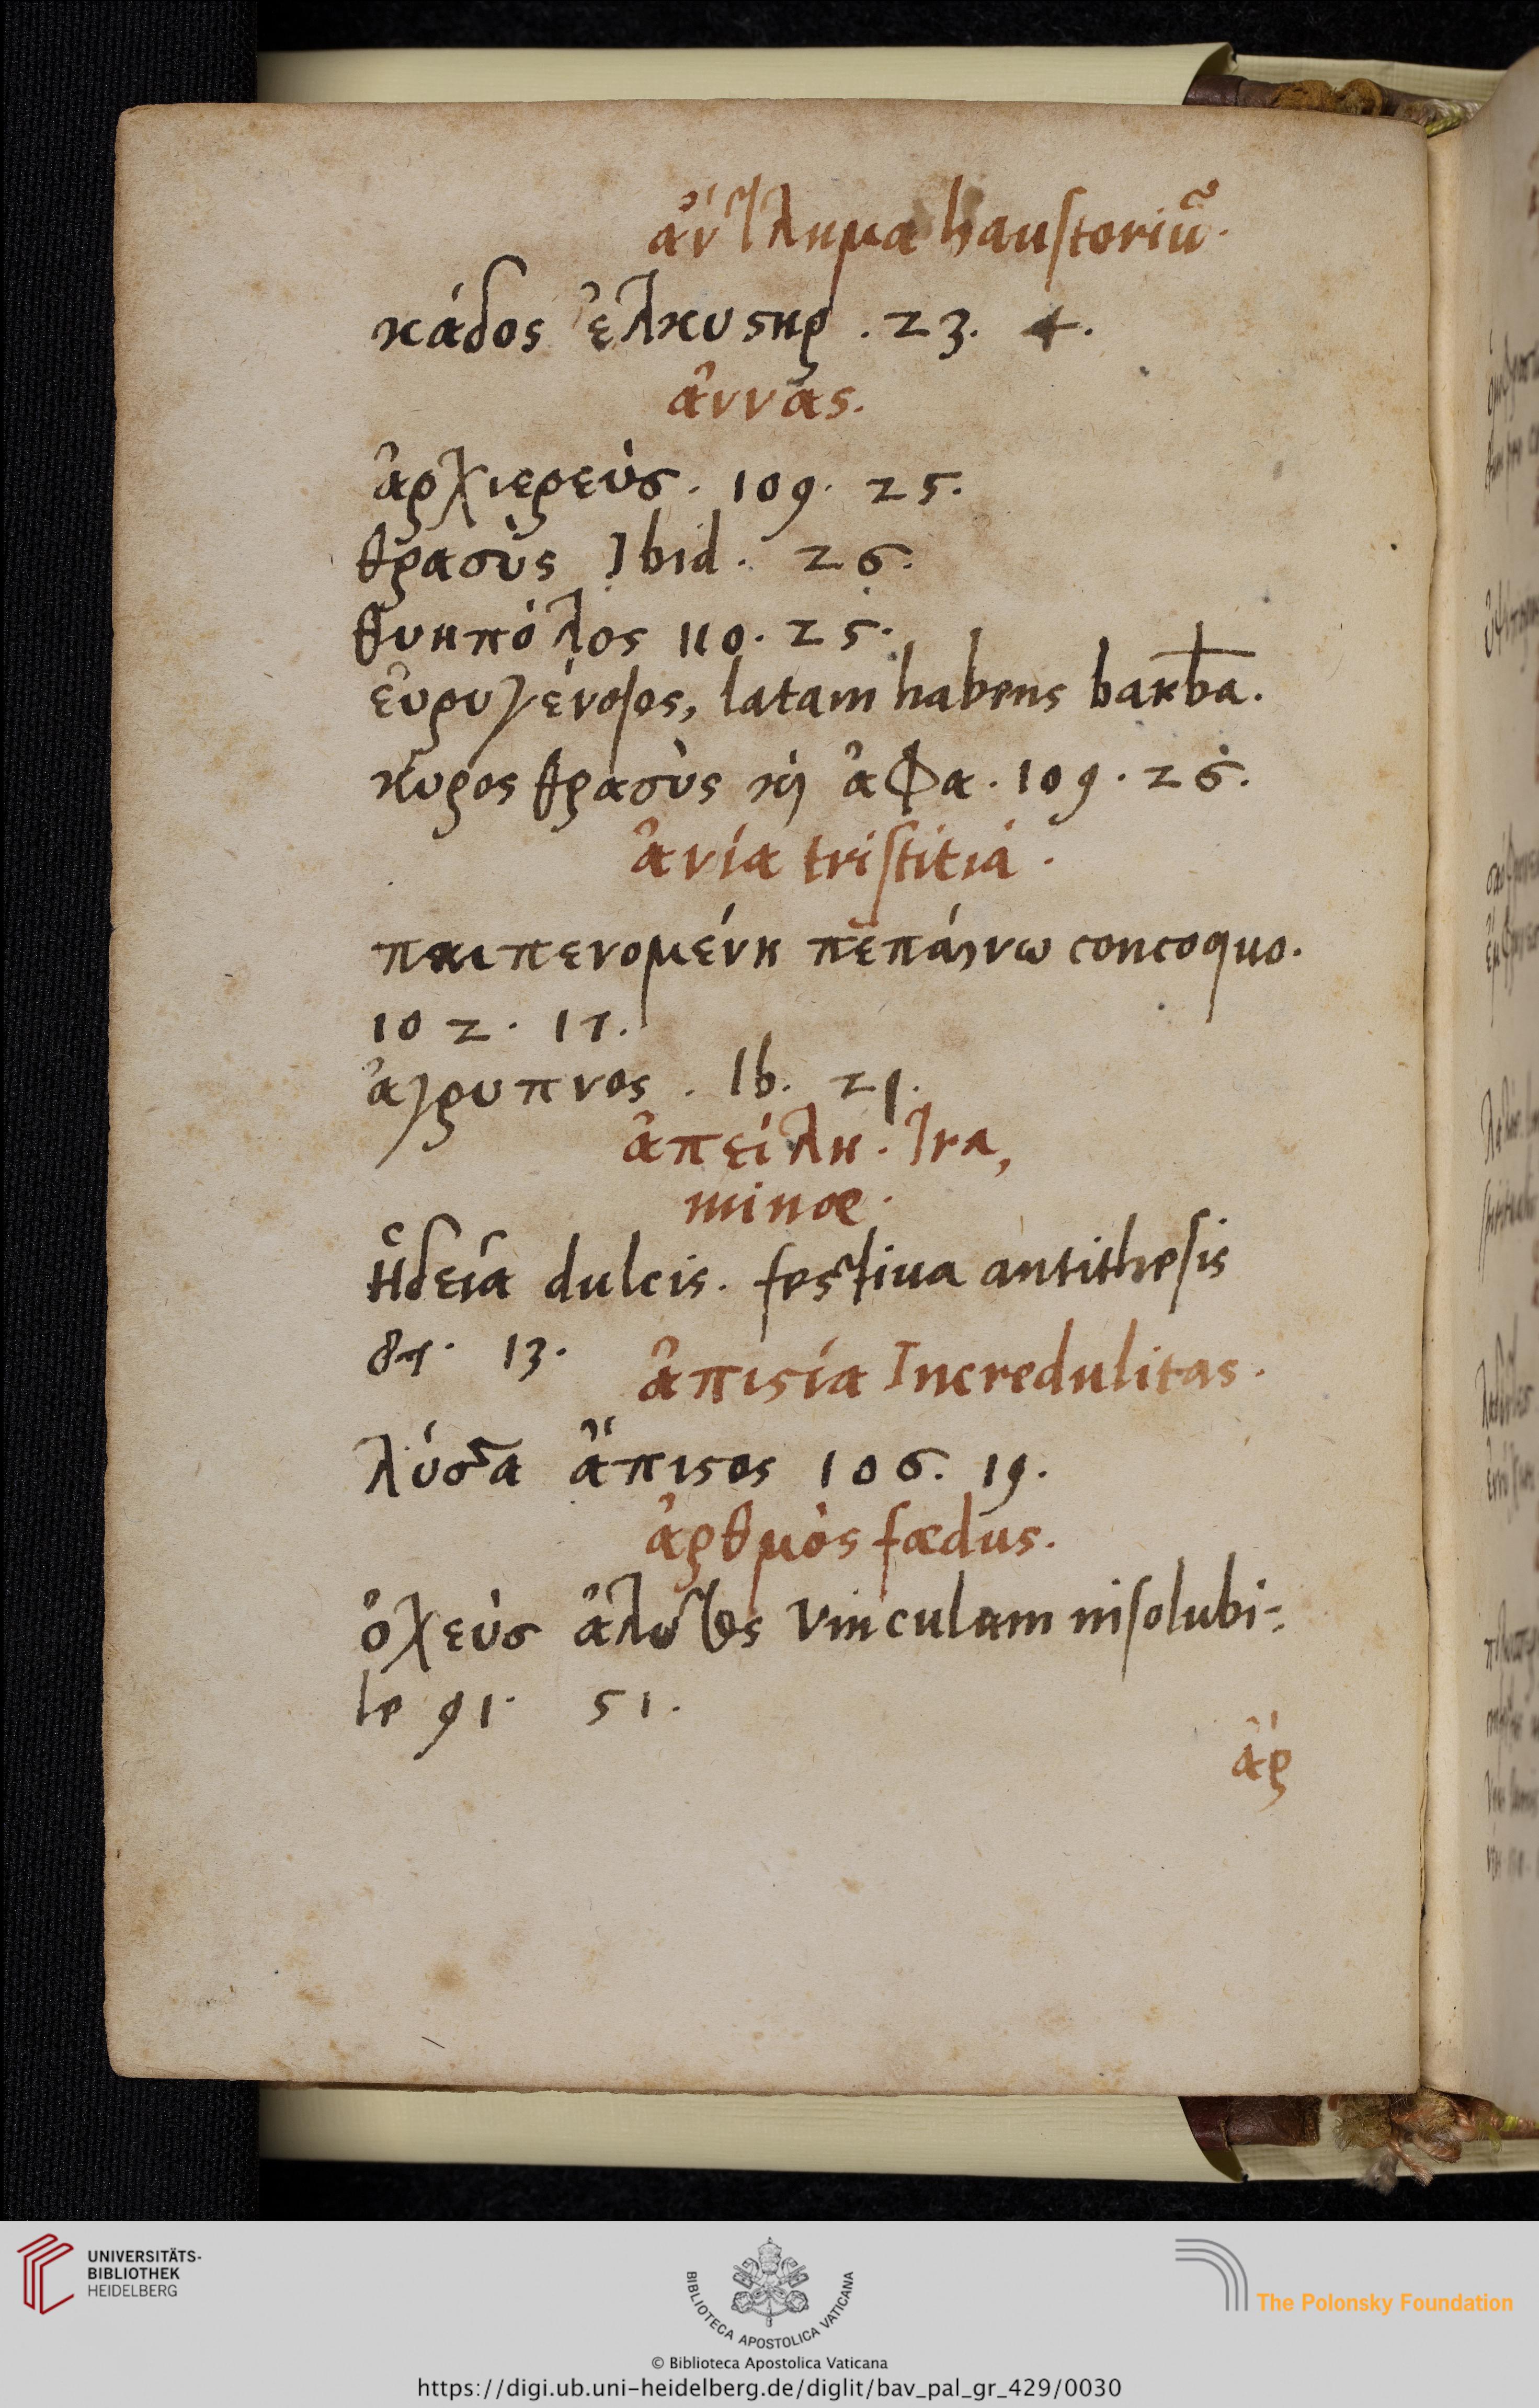 ἄντλημα haustoriũ.
κάδος ἑλκυστήρ . 23. 4.
ἄννας.
ἀρχιερεύς. 109. 25.
θρασὺς Ibid. 26.
θυηπόλος 110. 25.
εὐρυγένειος, latam habens barba.
θρασὺς καὶ 109. 26.
ἀνία tristitia.
πεπαίνω concoquo.
102. 17.
ἄγρυπνος . Ib. 21.
ἀπείλη. Ira,
minæ.
ἡδεῖα dulcis. festiua antithesis
87. 13. ἀπιστία Incredulitas.
λύσσα ἄπιστος 106. 19.
ἀρθμὸς fœdus.
ὀχεὺς ἄλυτος vinculum insolubi-
le 91. 51.
ἄρ
UNIVERSITÄTS-
BIBLIOTHEK
HEIDELBERG
BIBLIOTECA APOSTOLICA VATICANA
© Biblioteca Apostolica Vaticana
The Polonsky Foundation
https://digi.ub.uni-heidelberg.de/diglit/bav_pal_gr_429/0030